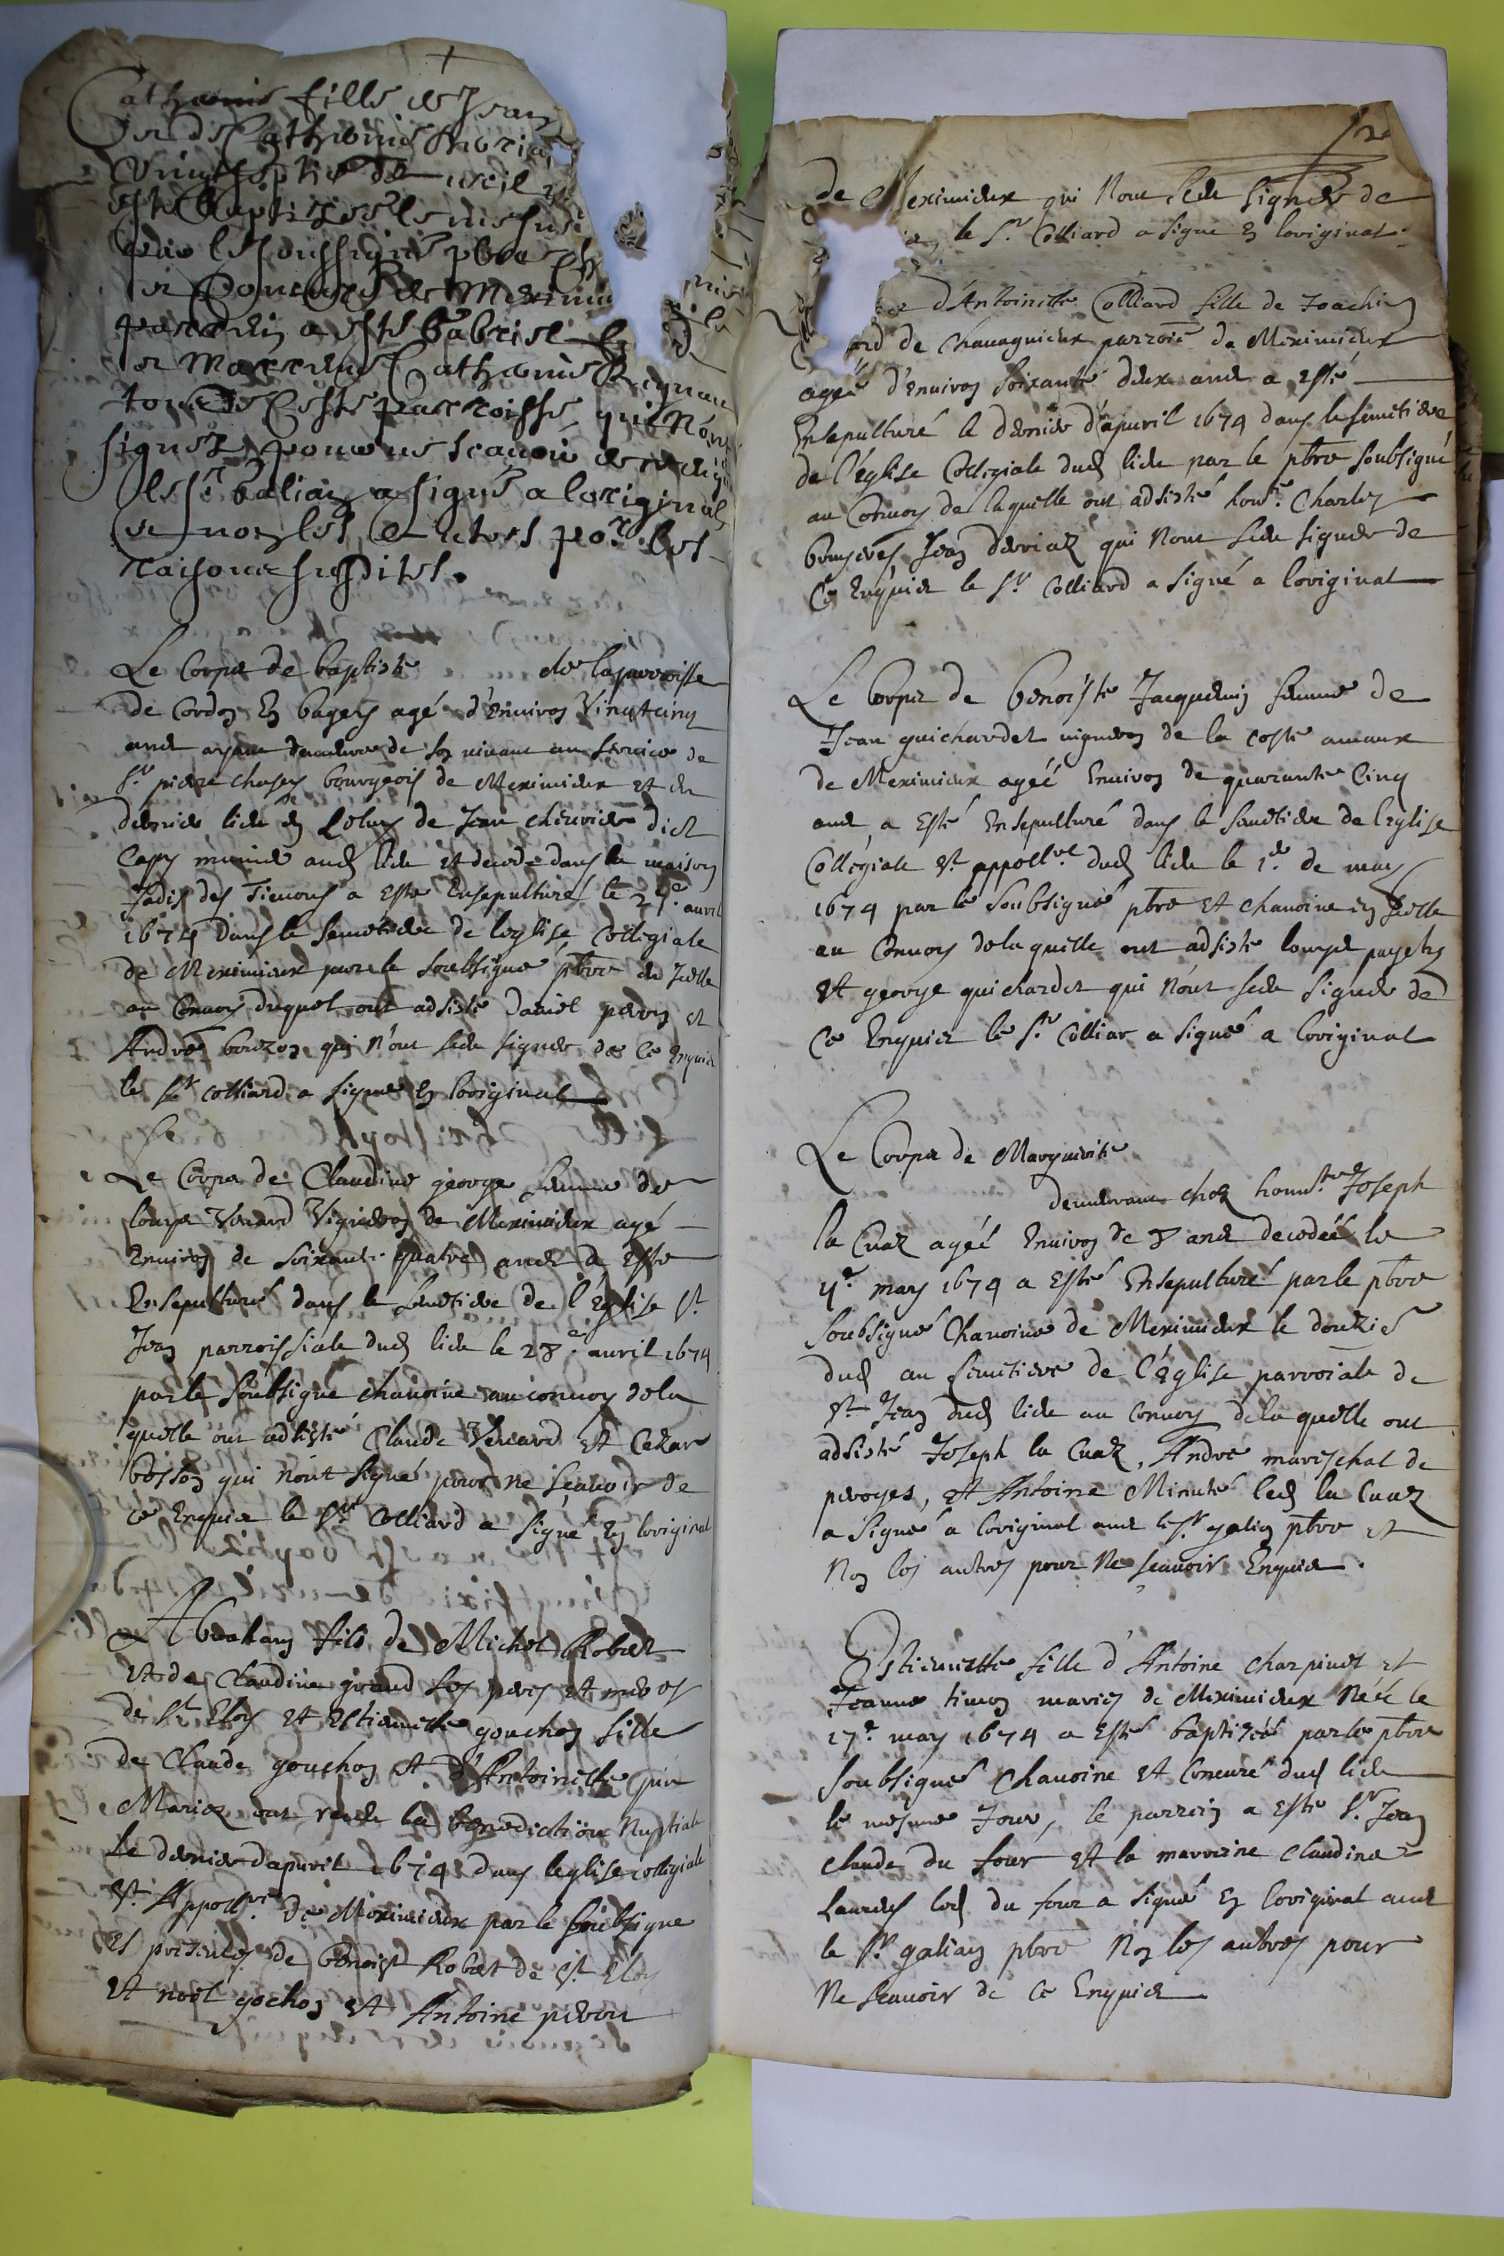 Catherine fille de Jean
et de Catherine
vingtseptie
este Baptizee le mesme
par le soussigné pbre
et Concuré de Meximieux
parrein a esté Gabriel
et Marreine Catherine
tous de Ceste parroisse qui n'ont
signez pour ne scauoir de ce
le Sr galian a signé a loriginal
et non les autres por les
raisons susdites.
Le Corps de baptiste de la parroisse
de Cordon En bugey agé d'Enuiron Vingtcinq
ans ayant demeuré de son viuant au seruice de
Sr pierre bourgeois de Meximieux et en
dernier lieu En celuy de Jean cheurier dict
aud lieu et decedé dans la maison
Jadis des a Esté Ensepulturé le 27e auril
1674 dans le semetiere de leglise Collegiale
de Meximieux par le soubsigné pbre en Icelle
au Conuoy duquel ont adsisté Daniel et
André bouzon qui n'ont sceu signer de Ce Enquis
le Sr Colliard a signé En loriginal
Le Corps de Claudine george femme de
louys Venard Vigneron de Meximieux agé
Enuiron de soixante quatre ans a Esté
Ensepulturé dans le semetiere de l'Eglise St
Jean parroissiale dud lieu le 28e auril 1674
par le soubsigné chanoine au conuoy de la
quelle ont adsisté Claude Venard et Cezar
bosson qui n'ont signé pour ne scauoir de
ce Enquis le Sr Colliard a signé En loriginal
Abraham fils de Michel Robert
et de Claudine girand ses peres et meres
de St Eloy et Estiennette gouchon fille
de Claude gouchon et d'Antoinette
Mariez ont receu la benediction Nuptiale
le dernier dapuril 1674 dans leglise collegiale
St Appollre de Meximieux par le soubsigné
Es presences de Benoist Robert de St Eloy
et noel gochon et Antoine peron
de Meximieux qui n'ont sceu signer de
le Sr Colliard a signé En loriginal
d'Antoinette Colliard fille de Joachin
de Chauagnieux parroie de Meximieux
agée d'Enuiron soixante deux ans a Esté
Ensepulturé le dernier d'apuril 1674 dans le semetiere
de l'église Collegiale dud lieu par le pbre soubsigné
au Conuoy de laquelle ont adsisté honte Charles
Jean deruiaz qui n'ont sceu signer de
Ce Enquis le Sr Colliard a signé a loriginal
Le Corps de Benoiste Jacquemin femme de
Jean guichardet vigneron de la coste aux
de Meximieux agéé Enuiron de quarante Cinq
ans, a Esté Ensepulturé dans le semetiere de l'eglise
Collégiale St appollre dud lieu le 1er de may
1674 par le soubsigné pbre et chanoine en Jcelle
au Conuoy de la quelle ont adsisté louys
et george guichardet qui n'ont sceu signer de
Ce Enquis le Sr Colliar a signé a loriginal
Le Corps de Marguerite
demeurant chez honnte Joseph
la Cuaz agéé Enuiron de 8 ans decedéé le
4e may 1674 a Esté Ensepulturé par le pbre
soubsigné Chanoine de Meximieux le
dud au semetiere de l'Eglise parroiale de
St Jean dud lieu au conuoy de la quelle ont
adsisté Joseph la Cuaz, André mareschal de
peroges, et Antoine Minuté led la Cuaz
a signé a loriginal auec le Sr galian pbre et
Non les autres pour Ne scauoir Enquis.
Estiennette fille d'Antoine charpinet et
Jeanne timon mariez de Meximieux Néé le
17e may 1674 a Esté baptiséé par le pbre
soubsigné Chanoine et Concuré dud lieu
le mesme Jour, le parrein a Esté Sr Jean
Claude du four et la marreine Claudine
led du four a signé En loriginal auec
le Sr galian pbre Non les autres pour
Ne scauoir de Ce Enquis